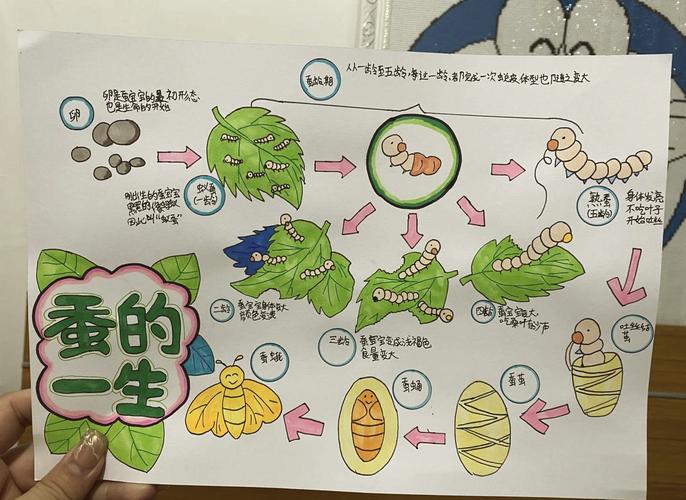 蚕龄期
从一龄至五龄,每过一龄,都完成一次蜕皮,体型也随之变大
卵
卵是蚕宝宝的最初形态
也是生命的开始
蚁蚕
(一龄)
刚出生的蚕宝宝
黑黑的像蚂蚁
因此叫“蚁蚕”
熟蚕
(五龄)
身体发亮
不吃叶子
开始吐丝
二龄
蚕宝宝身体变大
颜色变浅
三龄
蚕宝宝变成浅褐色
食量变大
四龄
蚕宝宝变大
吃桑叶
吐丝结
茧
蚕茧
蚕蛹
蚕蛾
蚕的
一生